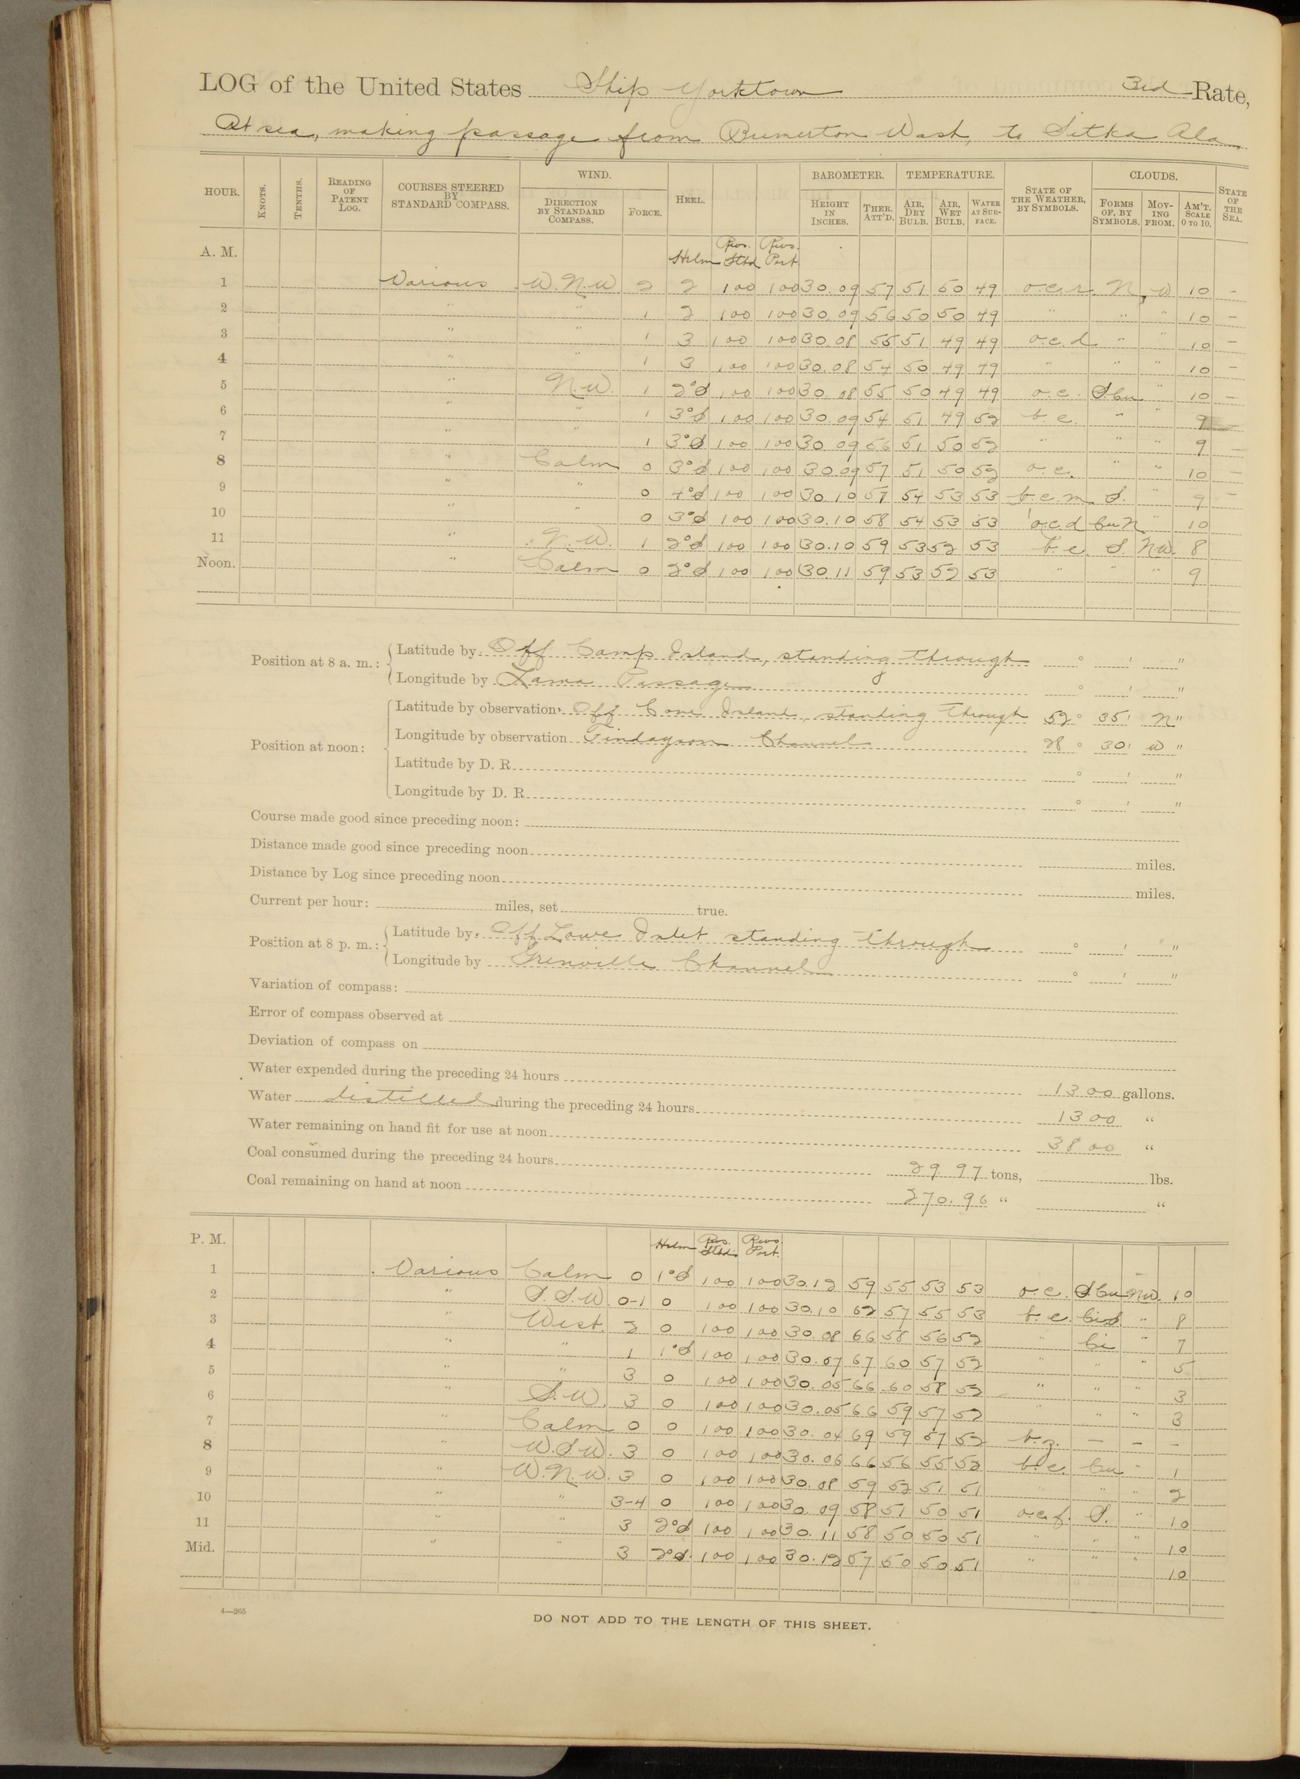 LOG of the United States Ship Yorktown 3rd Rate,
At sea, making passage from Bremerton Wash, to Sitka Ala
HOUR. KNOTS. TENTHS. READING OF PATENT LOG. COURSES STEERED BY STANDARD COMPASS. WIND. DIRECTION BY STANDARD COMPASS. FORCE. HEEL. BAROMETER. HEIGHT IN INCHES. THER. ATT'D. TEMPERATURE. AIR, DRY BULB. AIR, WET BULB. WATER AT SURFACE. STATE OF THE WEATHER, BY SYMBOLS. CLOUDS. FORMS OF, BY SYMBOLS. MOVING FROM. AM'T. SCALE 0 TO 10. STATE OF THE SEA.
A. M. Helm Revs. Stbd Revs. Port
1 Various W.N.W 2 2 100 100 30.09 57 51 50 49 o.c.r. N, W 10 -
2 " " 1 2 100 100 30.09 56 50 50 49 " " " 10 -
3 " " 1 3 100 100 30.08 55 51 49 49 o.c.d " " 10 -
4 " " 1 3 100 100 30.08 54 50 49 49 " " " 10 -
5 " N.W. 1 2°d 100 100 30.08 55 50 49 49 o.c. S.cu " 10 -
6 " " 1 3°d 100 100 30.09 54 51 49 52 b.c. " " 9
7 " " 1 3°d 100 100 30.09 56 51 50 52 " " " 9 -
8 " Calm 0 3°d 100 100 30.09 57 51 50 52 o.c. " " 10 -
9 " " 0 4°d 100 100 30.10 57 54 53 53 b.c.m S. " 9 -
10 " " 0 3°d 100 100 30.10 58 54 53 53 o.c.d CuN " 10
11 " N.W. 1 2°d 100 100 30.10 59 53 52 53 b.c. S. NW. 8
Noon. " Calm 0 2°d 100 100 30.11 59 53 52 53 " " " 9
Position at 8 a. m.: Latitude by Off Camp Island, standing through ° ' "
Longitude by Lama Passage ° ' "
Position at noon: Latitude by observation Off Cone Island, standing through 52° 35' N"
Longitude by observation Findlayson Channel 28° 30' W"
Latitude by D. R. ° ' "
Longitude by D. R. ° ' "
Course made good since preceding noon:
Distance made good since preceding noon miles.
Distance by Log since preceding noon miles.
Current per hour: miles, set true.
Position at 8 p. m.: Latitude by Off Lowe Inlet standing through ° ' "
Longitude by Grenville Channel ° ' "
Variation of compass:
Error of compass observed at
Deviation of compass on
Water expended during the preceding 24 hours 1300 gallons.
Water distilled during the preceding 24 hours 1300 "
Water remaining on hand fit for use at noon 3800 "
Coal consumed during the preceding 24 hours 29.97 tons, lbs.
Coal remaining on hand at noon 270.96 " "
P. M. Helm Revs. Stbd. Revs. Port.
1 Various Calm 0 1°d 100 100 30.12 59 55 53 53 o.c. S Cu NW. 10
2 " S.S.W. 0-1 0 100 100 30.10 62 57 55 53 b.c. CiS " 8
3 West. 2 0 100 100 30.08 66 58 56 52 " Ci " 7
4 " " 1 1°d 100 100 30.07 67 60 57 52 " " " 5
5 " " 3 0 100 100 30.05 66 60 58 52 " " " 3
6 " S.W. 3 0 100 100 30.05 66 59 57 52 " " 3
7 " Calm 0 0 100 100 30.04 69 59 57 52 b.z. - - -
8 " W.S.W. 3 0 100 100 30.06 66 56 55 52 b.c. Cu " 1
9 " W.N.W. 3 0 100 100 30.08 59 52 51 51 " " " 2
10 " " 3-4 0 100 100 30.09 58 51 50 51 o.c.f. S. " 10
11 " " 3 2°d 100 100 30.11 58 50 50 51 " " " 10
Mid. " " 3 2°d. 100 100 30.12 57 50 50 51 " " " 10
4—265
DO NOT ADD TO THE LENGTH OF THIS SHEET.